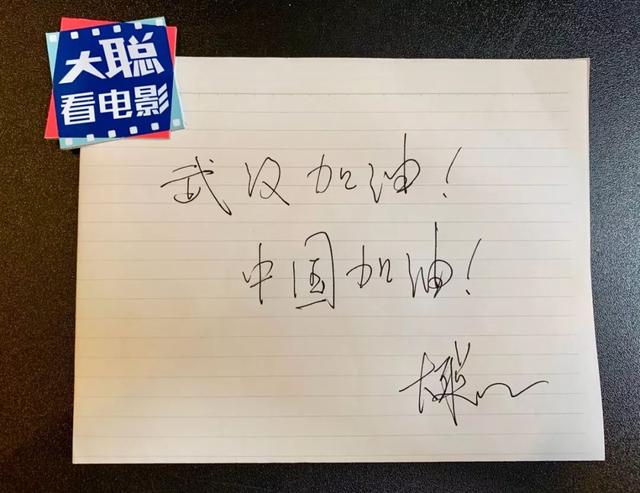 大聪
看电影
武汉加油！
中国加油！